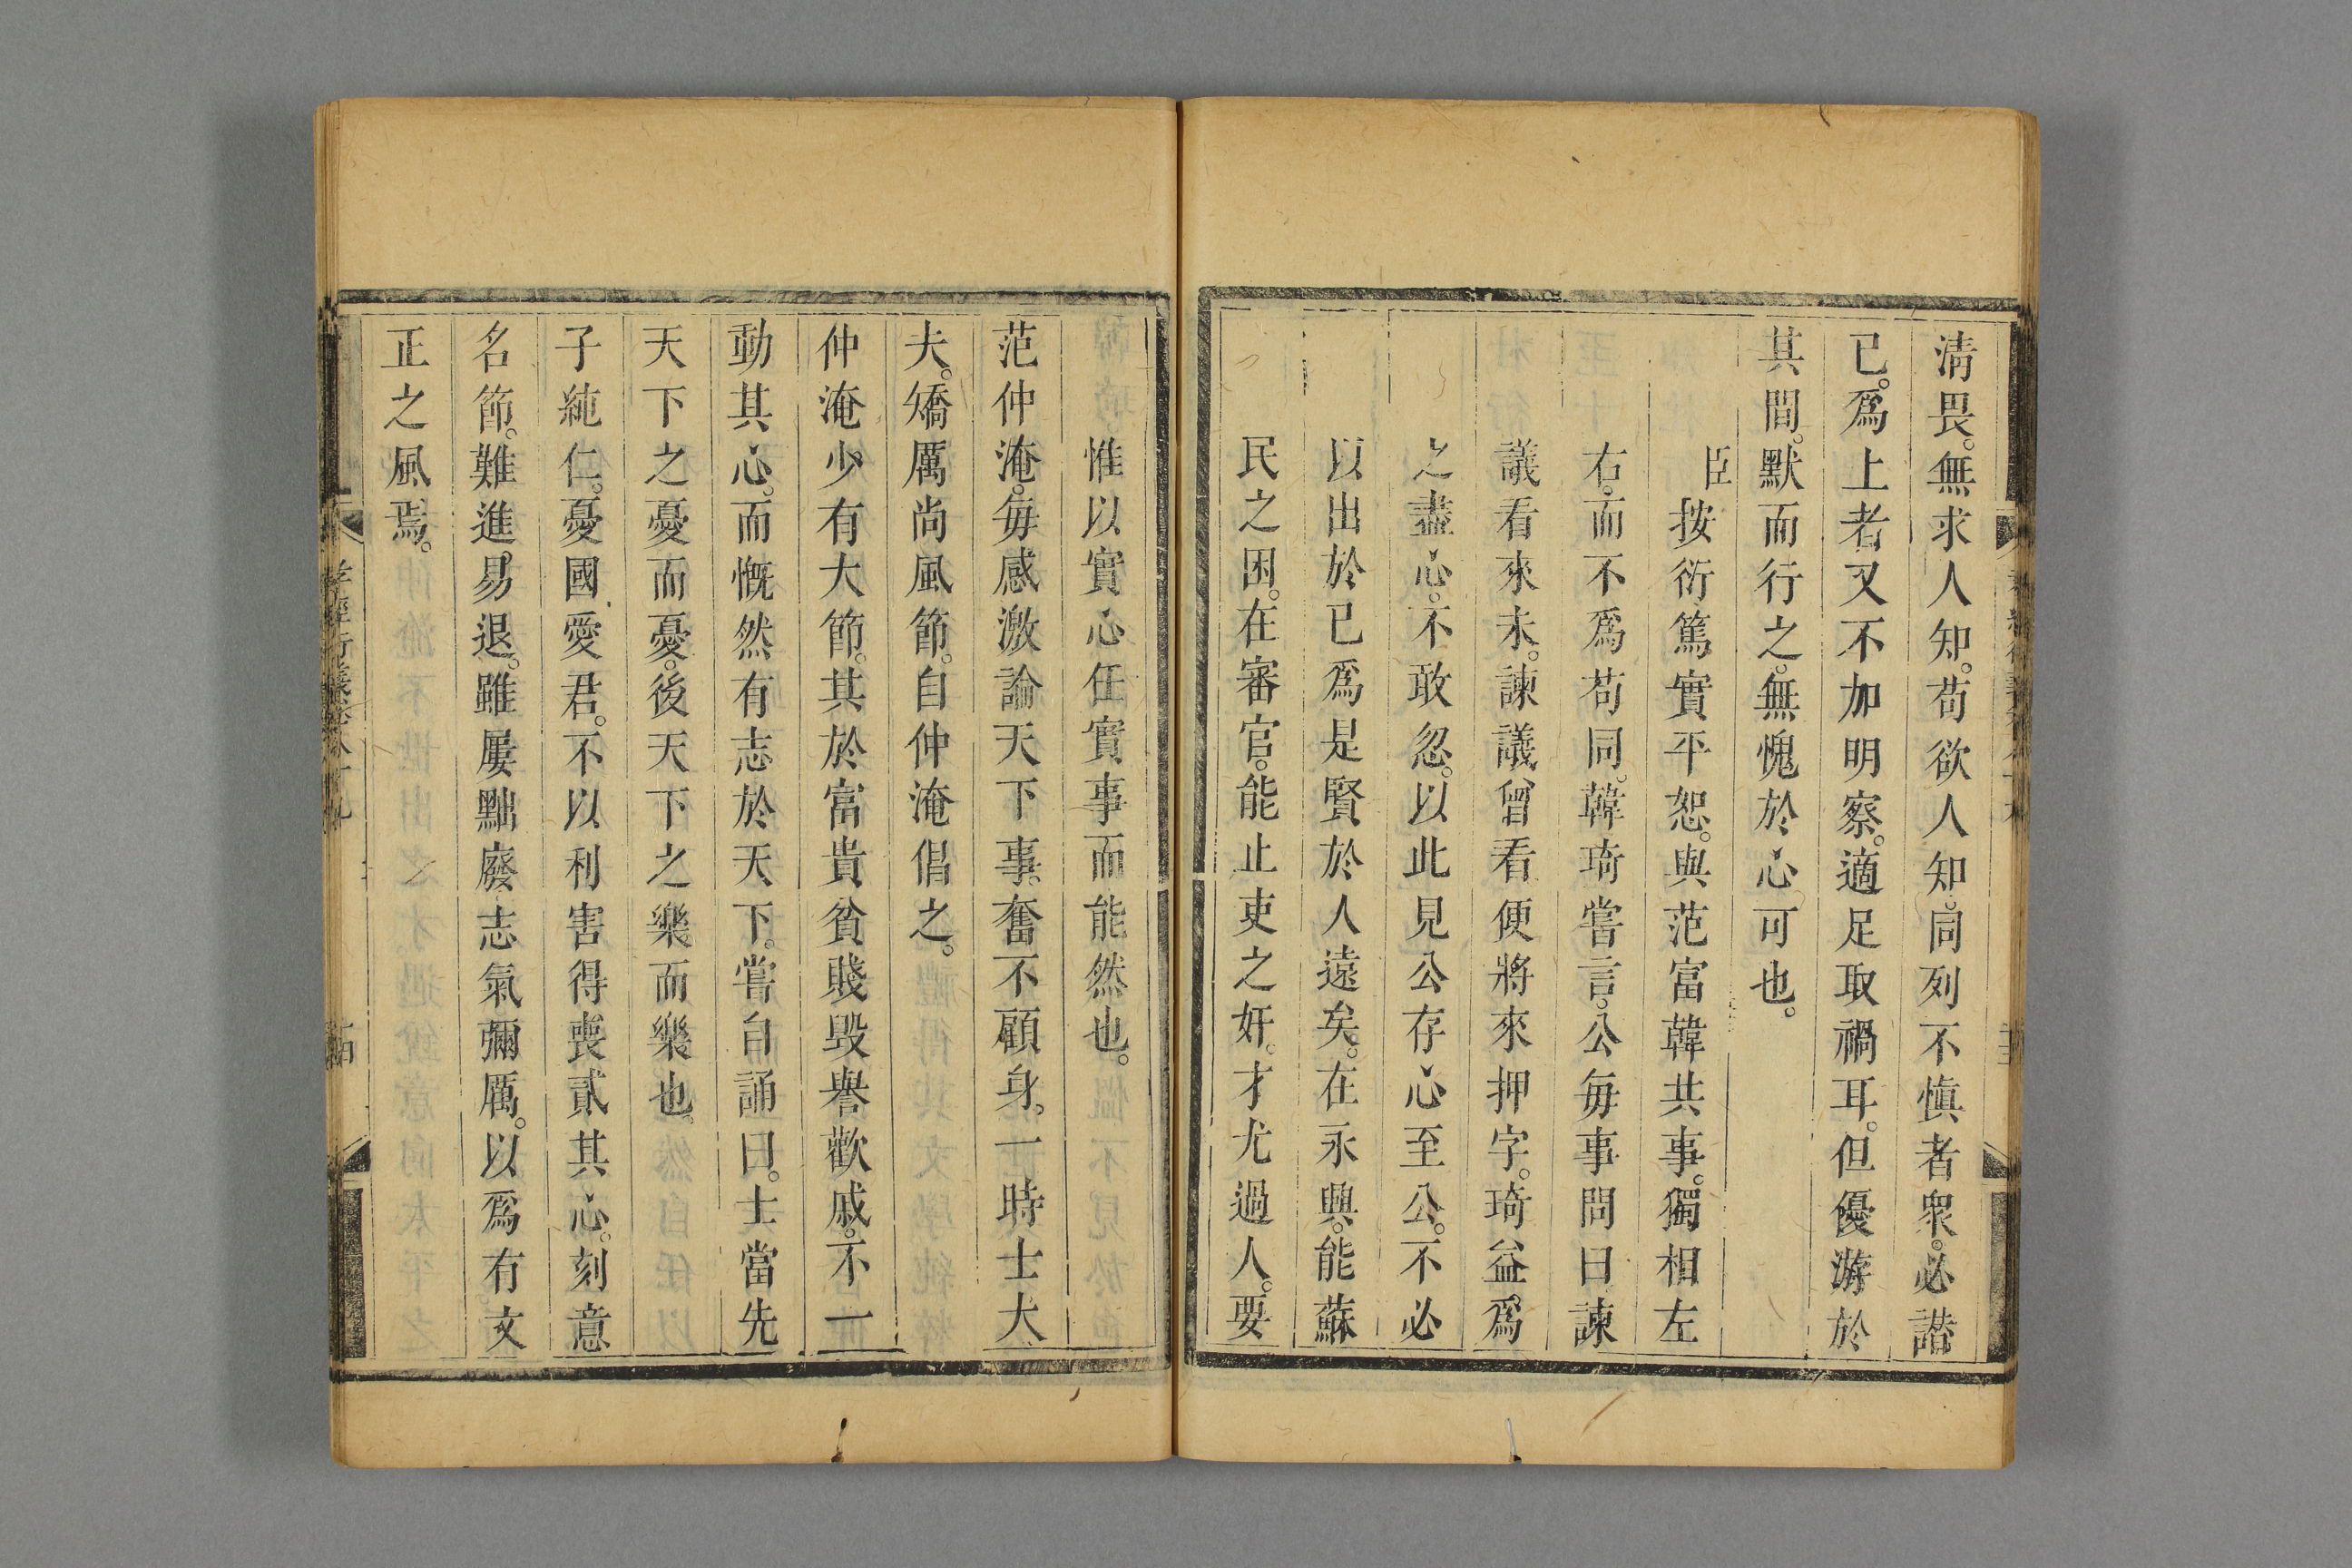 清畏。無求人知。苟欲人知。同列不慎者衆。必譖
已。爲上者又不加明察。適足取禍耳。但優游於
其間。默而行之。無愧於心可也。
臣按衍篤實平恕。與范富韓共事。獨相左
右。而不爲苟同。韓琦嘗言。公每事問曰諫
議看來未。諫議曾看便將來押字。琦益爲
之盡心。不敢忽。以此見公存心至公。不必
以出於已爲是賢於人遠矣。在永興。能蘇
民之困。在審官。能止吏之奸。才尤過人。要
惟以實心任實事而能然也。
范仲淹。每感激論天下事。奮不顧身。一時士大
夫。矯厲尚風節。自仲淹倡之。
仲淹少有大節。其於富貴貧賤毀譽歡戚。不一
動其心。而慨然有志於天下。嘗自誦曰。士當先
天下之憂而憂。後天下之樂而樂也。
子純仁。憂國愛君。不以利害得喪貳其心。刻意
名節。難進易退。雖屢黜廢志氣彌厲。以爲有文
正之風焉。